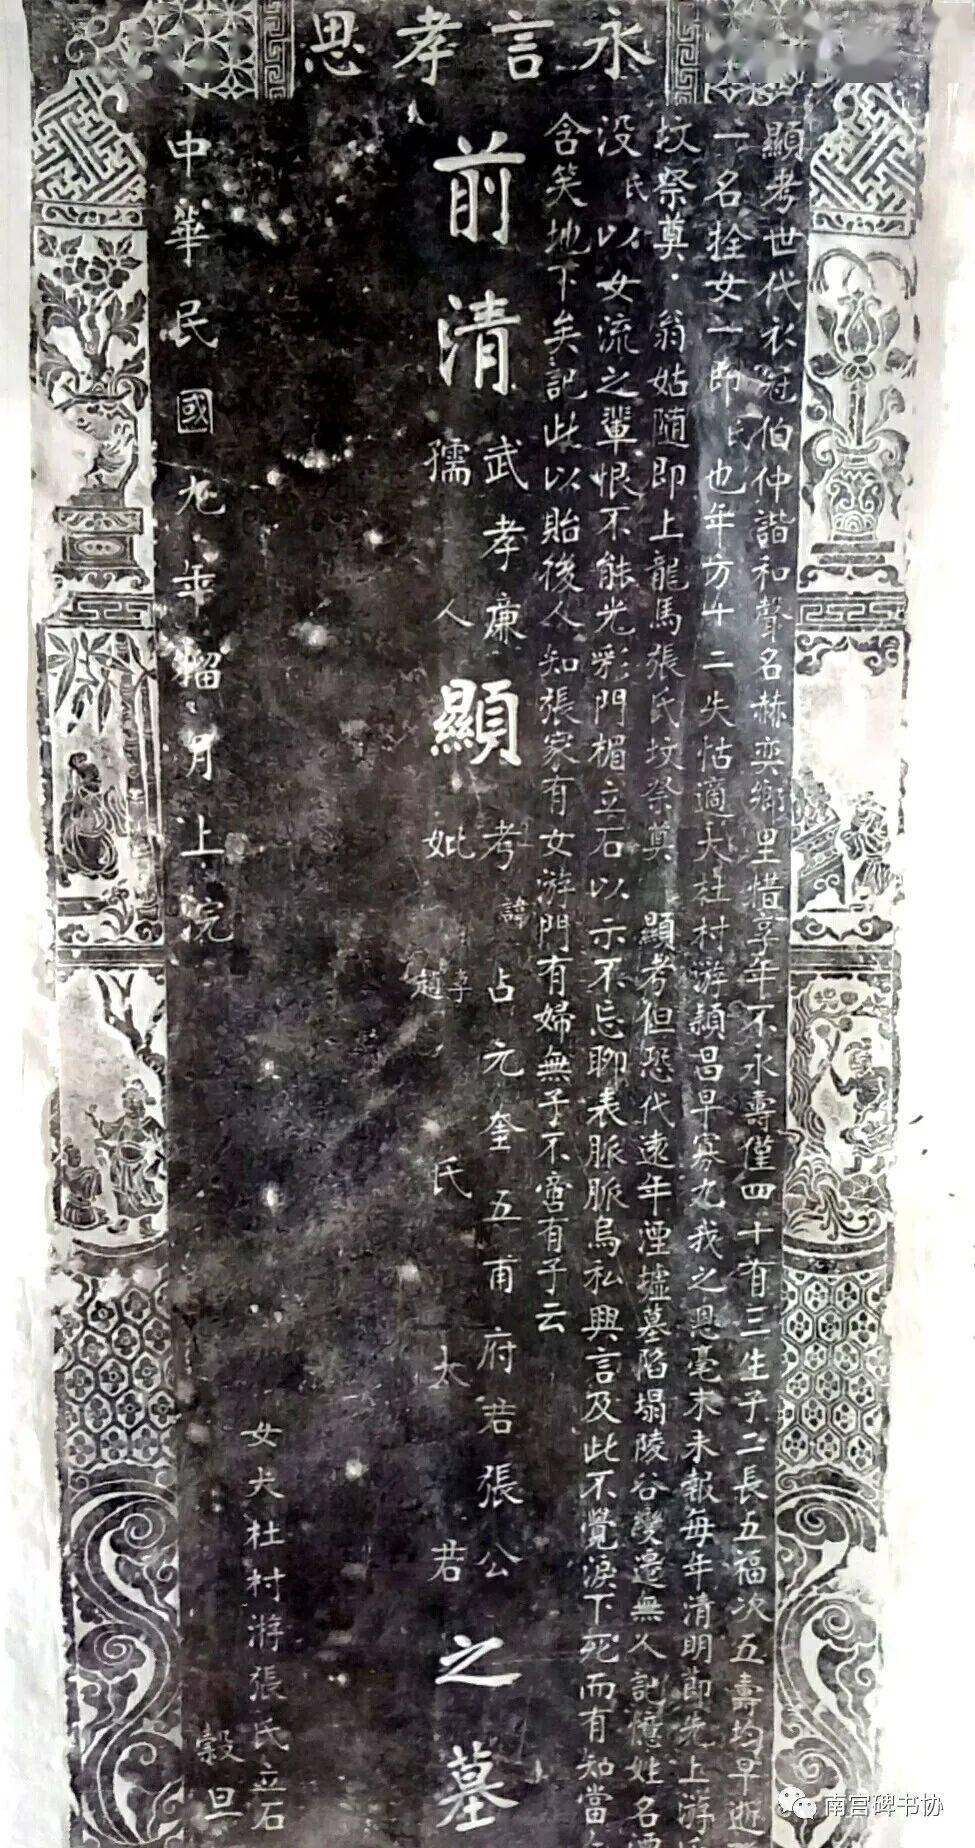 永言孝思
顯考世代衣冠伯仲諧和聲名赫奕鄉里惜享年不永壽僅四十有三生子二長五福次五壽均早逝
一名拴女一即氏也年方十二失怙適大杜村游穎昌早寡九我之恩毫末未報每年清明節先上游
坟祭奠翁姑隨即上龍馬張氏坟祭奠顯考但恐代遠年湮墟墓陷塌陵谷變遷無人記憶姓名湮
没氏以女流之輩恨不能光彩門楣立石以示不忘聊表脈脈烏私興言及此不覺淚下死而有知當
含笑地下矣記此以貽後人知張家有女游門有婦無子不啻有子云
前清武孝廉顯考諱占元奎五甫府君張公之墓
孺人妣李趙氏太君
女大杜村游張氏立石
中華民國九年榴月上浣穀旦
南宫碑书协